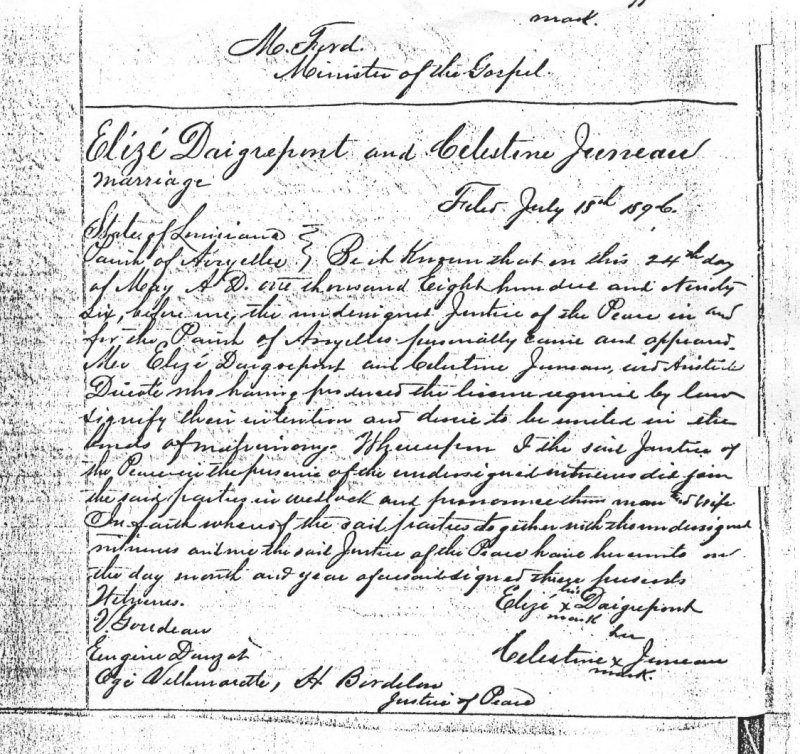 mark.
M. Ford.
Minister of the Gospel.
Elizé Daigrepont and Celestine Juneau
marriage
Filed July 15th 1896.
State of Louisiana
Parish of Avoyelles } Be it Known that on this 24th day
of May A. D. one thousand Eight hundred and Ninety
six, before me, the undersigned Justice of the Peace in and
for the Parish of Avoyelles personally came and appeared
Mr Elizé Daigrepont and Celestine Juneau,
who having produced the license required by law
signify their intention and desire to be united in the
bonds of matrimony. Whereupon I the said Justice of
the Peace in the presence of the undersigned witnesses did join
the said parties in wedlock and pronounce them man and wife
In faith whereof the said parties together with the undersigned
witnesses and me the said Justice of the Peace have hereunto on
the day month and year aforesaid signed these presents
Witnesses.
Elizé his x mark Daigrepont
V Goudeau
Celestine her x mark. Juneau
Eugène Dauzat
H Bordelon
Justice of Peace